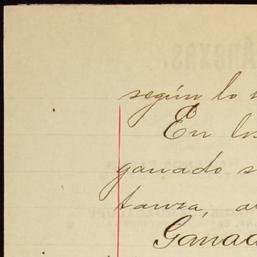 según lo
En los
ganado s
tanza, a
Ganad